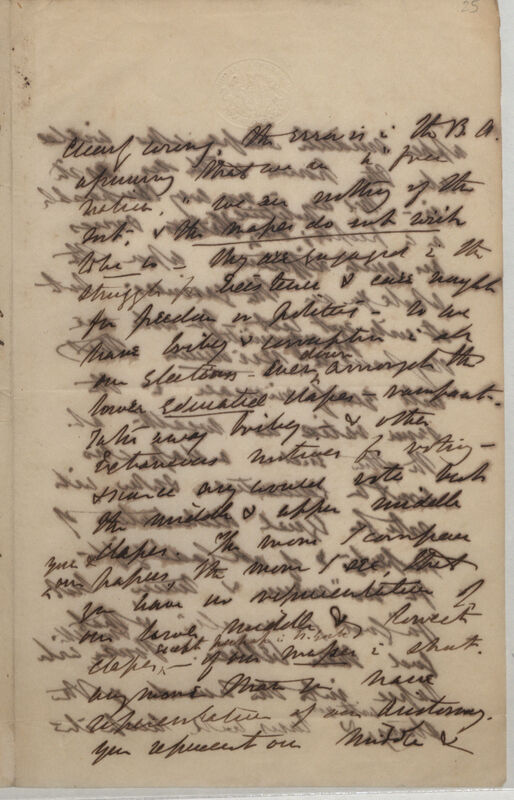 25
clearly wrong. The error is in the B. A.
assuming that we are a "free
nation," we are nothing of the
sort, & the masses do not wish
to be so – they are engaged in the
struggle for existence & care naught
for freedom or Politics – so we
have bribery & corruption in all
our Elections – even down amongst the
lower educated classes – rampant.
Take away bribery & other
extraneous motives for voting –
& scarce any would vote but
the middle & upper middle
classes. The more I compare
your & our papers, the more I see, that
you have no representation of
our lower middle & lowest
classes – except perhaps in – of our masses in short
any more than we have
representation of our Aristocracy.
you represent our Middle &